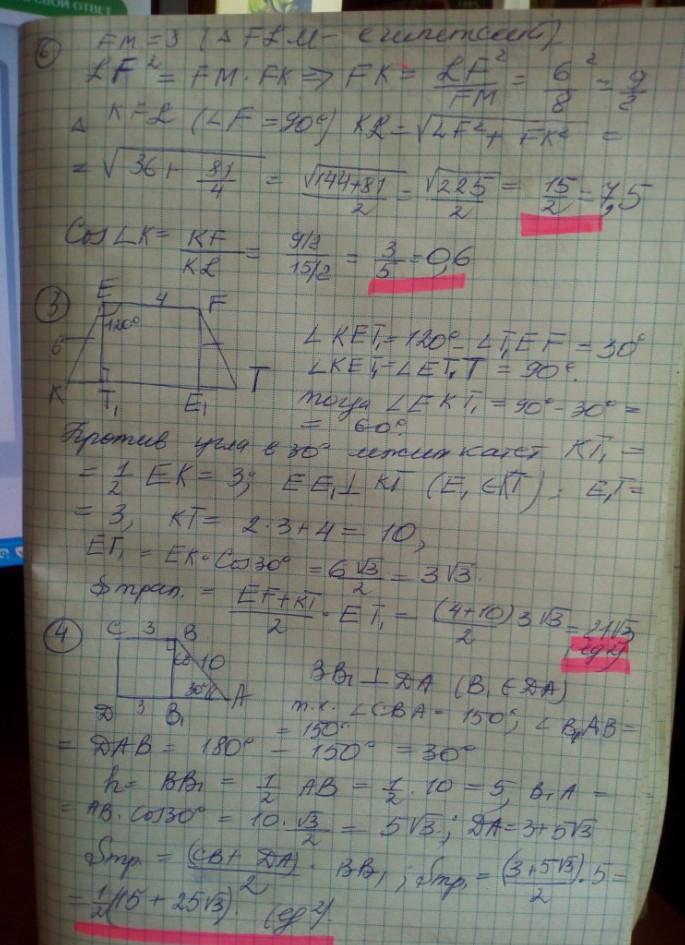 СВОЙ ОТВЕТ
6
FM = 3 (Δ FLM - египетский)
LF² = FM · FK => FK = LF²/FM = 6²/8 = 9/2
Δ KFL (∠F = 90°) KL = √(LF² + FK²) =
= √(36 + 81/4) = √(144+81)/2 = √225/2 = 15/2 = 7,5
Cos∠K = KF/KL = 9/2/15/2 = 3/5 = 0,6
3
E 4 F
120°
6
K T₁ E₁ T
∠KET₁ = 120° - ∠T₁EF = 30°
∠KET₁ = ∠ET₁T = 90°.
тогда ∠EKT₁ = 90° - 30° =
= 60°.
Против угла в 30° лежит катет KT₁ =
= 1/2 EK = 3; EE₁ ⊥ KT (E₁ ∈ KT); E₁T =
= 3, KT = 2·3+4 = 10,
ET₁ = EK · Cos30° = 6√3/2 = 3√3.
Sтрап. = (EF+KT)/2 · ET₁ = (4+10)/2 3√3 = 21√3
(ед²)
4
C 3 B
60° 10
30° A
D 3 B₁
BB₁ ⊥ DA (B₁ ∈ DA)
т.к. ∠CBA = 150°, ∠B₁AB =
= 150°
= DAB = 180° - 150° = 30°
h = BB₁ = 1/2 AB = 1/2 · 10 = 5, B₁A =
= AB · Cos30° = 10 · √3/2 = 5√3; DA = 3+5√3
Sтр. = (CB + DA)/2 · BB₁; Sтр. = (3+5√3)/2 · 5 =
= 1/2(15 + 25√3). (ед²).